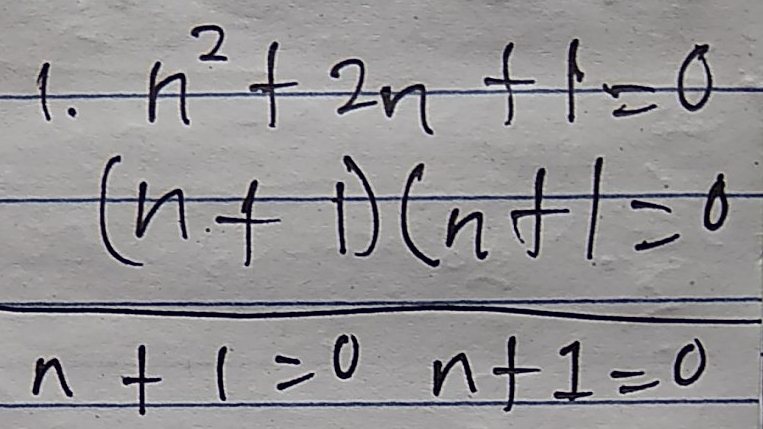 1. n² + 2n + 1 = 0
(n + 1)(n + 1 = 0
n + 1 = 0 n + 1 = 0